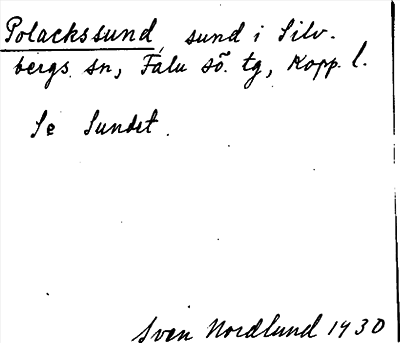 Polackssund, sund i Silv-
bergs sn, Falu sö. tg, Kopp. l.
Se Sundet.
Sven Nordlund 1930